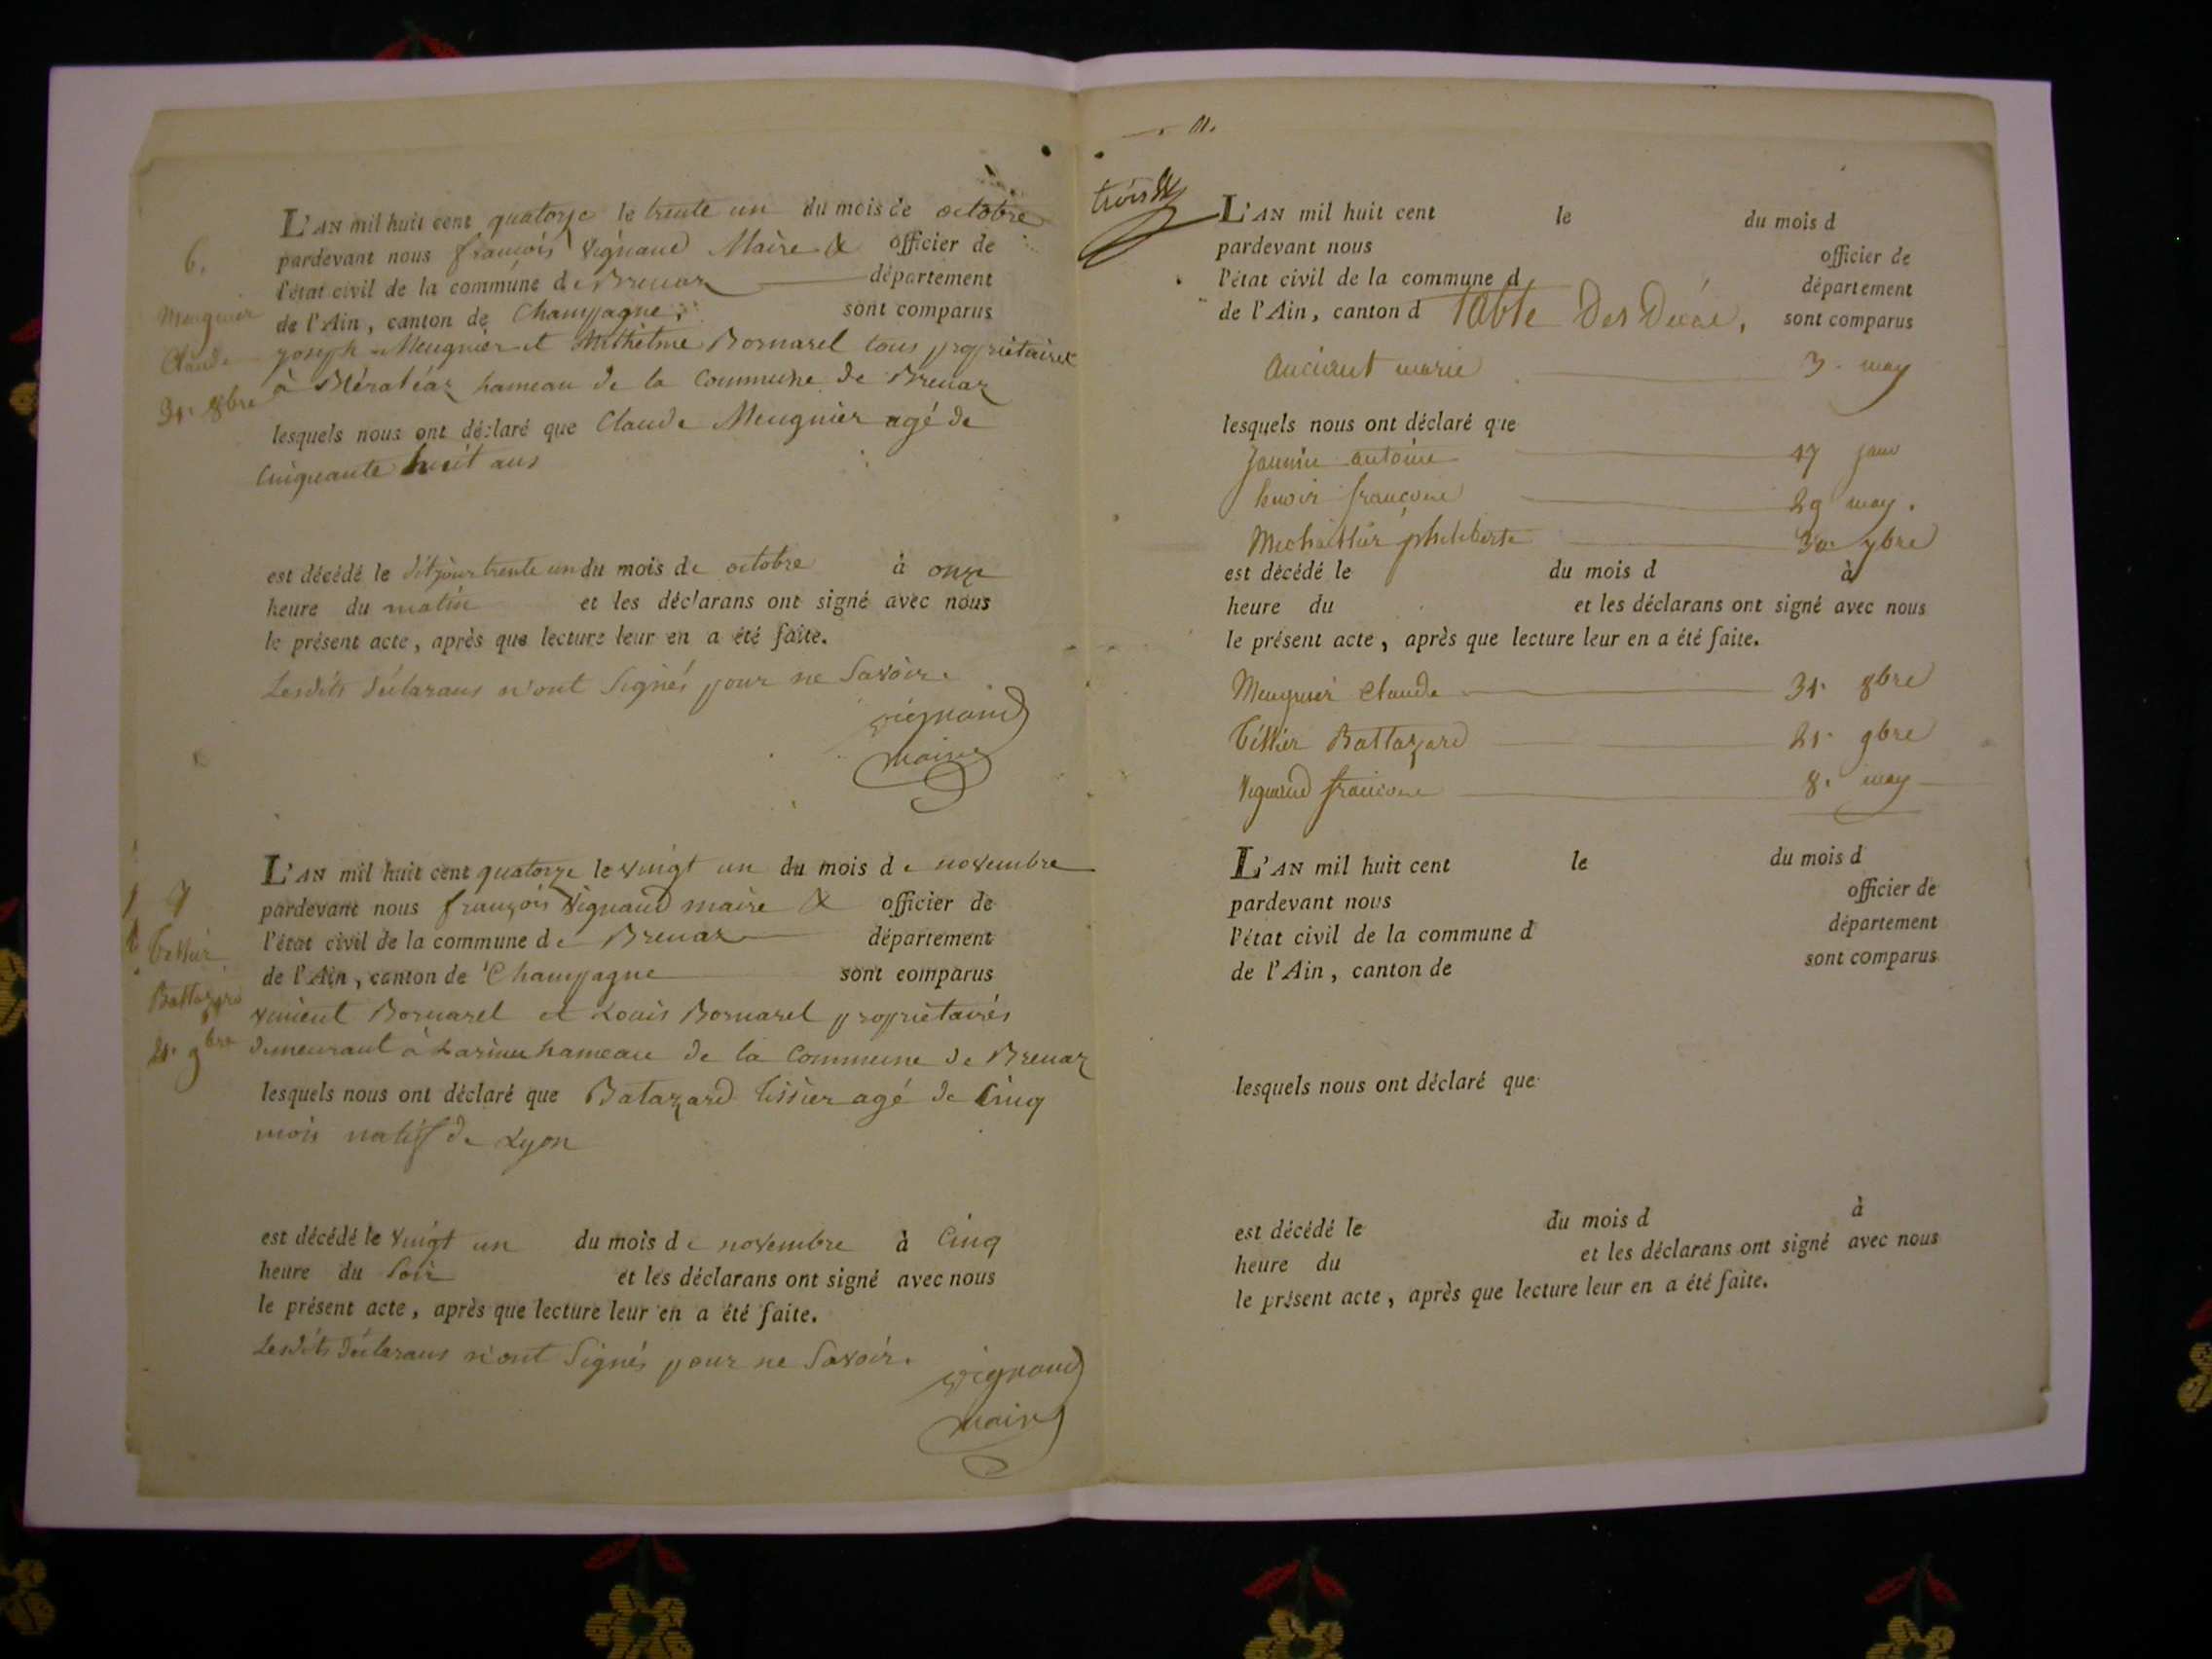 6.
Meugnier
Claude
31. 8bre
L'AN mil huit cent quatorze le trente un du mois de octobre
pardevant nous françois Vignaud Maire & officier de
l'état civil de la commune de Brenaz département
de l'Ain, canton de Champagne, sont comparus
joseph Meugnier et Anthelme Bornarel tous propriétaires
à Méraléaz hameau de la Commune de Brenaz
lesquels nous ont déclaré que Claude Meugnier agé de
Cinquante huit ans
est décédé le ditjour trente un du mois de octobre à onze
heure du matin et les déclarans ont signé avec nous
le présent acte, après que lecture leur en a été faite.
Lesdits déclarans n'ont Signés pour ne Savoir.
vignaud
maire
7
Tissier
Battazard
21. 9bre
L'AN mil huit cent quatorze le vingt un du mois de novembre
pardevant nous françois Vignaud maire & officier de
l'état civil de la commune de Brenaz département
de l'Ain, canton de Champagne sont comparus
vincent Bornarel et Louis Bornarel propriétairés
demeurant à hameau de la Commune de Brenaz
lesquels nous ont déclaré que Batazard Tissier agé de Cinq
mois natif de Lyon
est décédé le vingt un du mois de novembre à Cinq
heure du Soir et les déclarans ont signé avec nous
le présent acte, après que lecture leur en a été faite.
Lesdits déclarans n'ont Signés pour ne Savoir.
vignaud
maire
trois
L'AN mil huit cent le du mois d
pardevant nous officier de
l'état civil de la commune d département
de l'Ain, canton d Table Des Décés, sont comparus
marie 3. may
lesquels nous ont déclaré que
antoine 17 janv
françoise 29 may.
philiberte 30. 7bre
est décédé le du mois d à
heure du et les déclarans ont signé avec nous
le présent acte, après que lecture leur en a été faite.
Meugnier Claude 31. 8bre
Tissier Battazard 21. 9bre
Vignaud françoise 8. may
L'AN mil huit cent le du mois d
pardevant nous officier de
l'état civil de la commune d département
de l'Ain, canton de sont comparus
lesquels nous ont déclaré que
est décédé le du mois d à
heure du et les déclarans ont signé avec nous
le présent acte, après que lecture leur en a été faite.